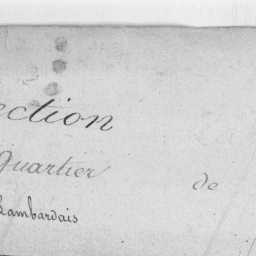 ection
Quartier de
Lambardais